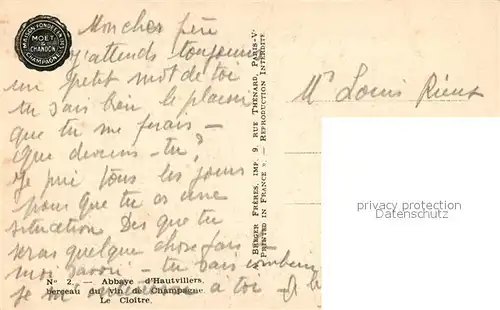 MAISON FONDÉE EN 1743
MOËT
&
CHANDON
CHAMPAGNE
Mon cher père
J'attends toujours
un petit mot de toi
tu sais bien le plaisir
que tu me ferais –
Que deviens-tu ?
Je prie tous les jours
pour que tu as une
situation Dès que tu
seras quelque chose fais –
moi savoir – tu sais combien
je m' à toi –
No 2. — Abbaye d'Hautvillers,
berceau du vin de Champagne.
Le Cloître.
BERGER FRÈRES, IMP. 9, RUE THÉNARD, PARIS-Ve
PRINTED IN FRANCE — REPRODUCTION INTERDITE
Mr Louis
privacy protection
copyright